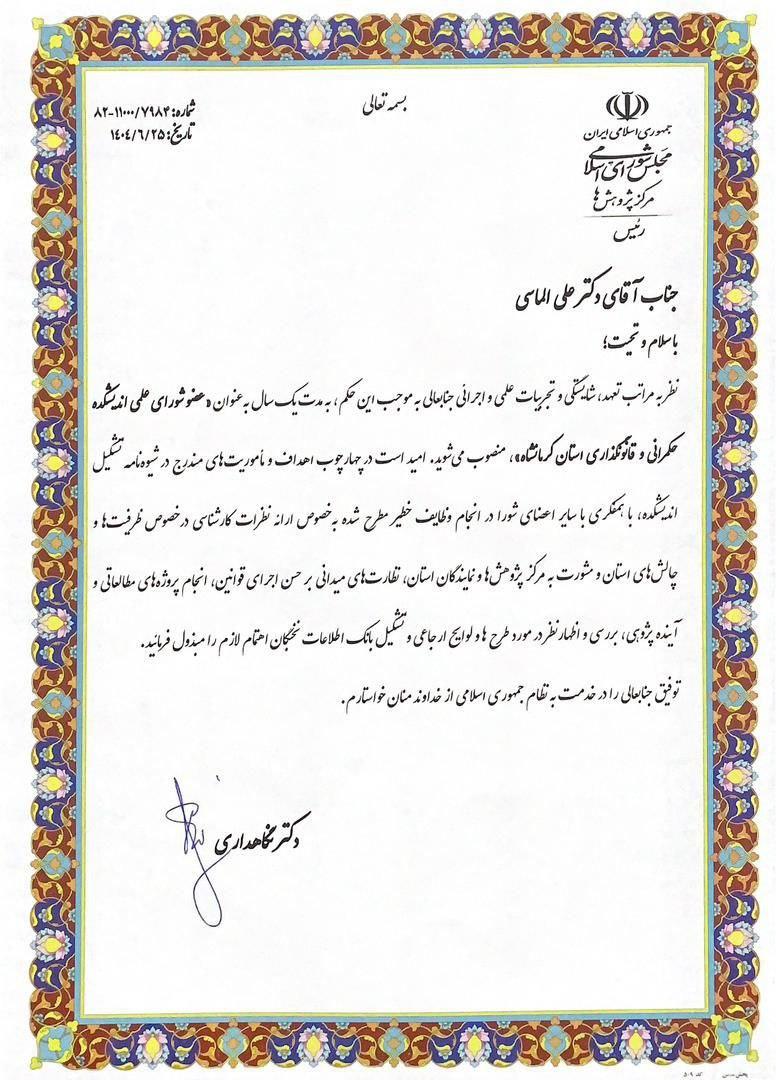 بسمه تعالی
جمهوری اسلامی ایران
مجلس شورای اسلامی
مرکز پژوهش‌ها
رئیس
شماره: ۸۲-۱۱۰۰۰/۷۹۸۴
تاریخ: ۱۴۰۴/۶/۲۵
جناب آقای دکتر علی الماسی
با سلام و تحیت؛
نظر به مراتب تعهد، شایستگی و تجربیات علمی و اجرائی جنابعالی به موجب این حکم، به مدت یک سال به عنوان «عضو شورای علمی اندیشکده
حکمرانی و قانونگذاری استان کرمانشاه»، منصوب می‌شوید. امید است در چهارچوب اهداف و مأموریت‌های مندرج در شیوه‌نامه تشکیل
اندیشکده، با همفکری با سایر اعضای شورا در انجام وظایف خطیر مطرح شده به‌خصوص ارائه نظرات کارشناسی درخصوص ظرفیت‌ها و
چالش‌های استان و مشورت به مرکز پژوهش‌ها و نمایندگان استان، نظارت‌های میدانی بر حسن اجرای قوانین، انجام پروژه‌های مطالعاتی و
آینده پژوهی، بررسی و اظهارنظر در مورد طرح ها و لوایح ارجاعی و تشکیل بانک اطلاعات نخبگان اهتمام لازم را مبذول فرمائید.
توفیق جنابعالی را در خدمت به نظام جمهوری اسلامی از خداوند منان خواستارم.
دکتر نگاهداری
کد ۵۰۹